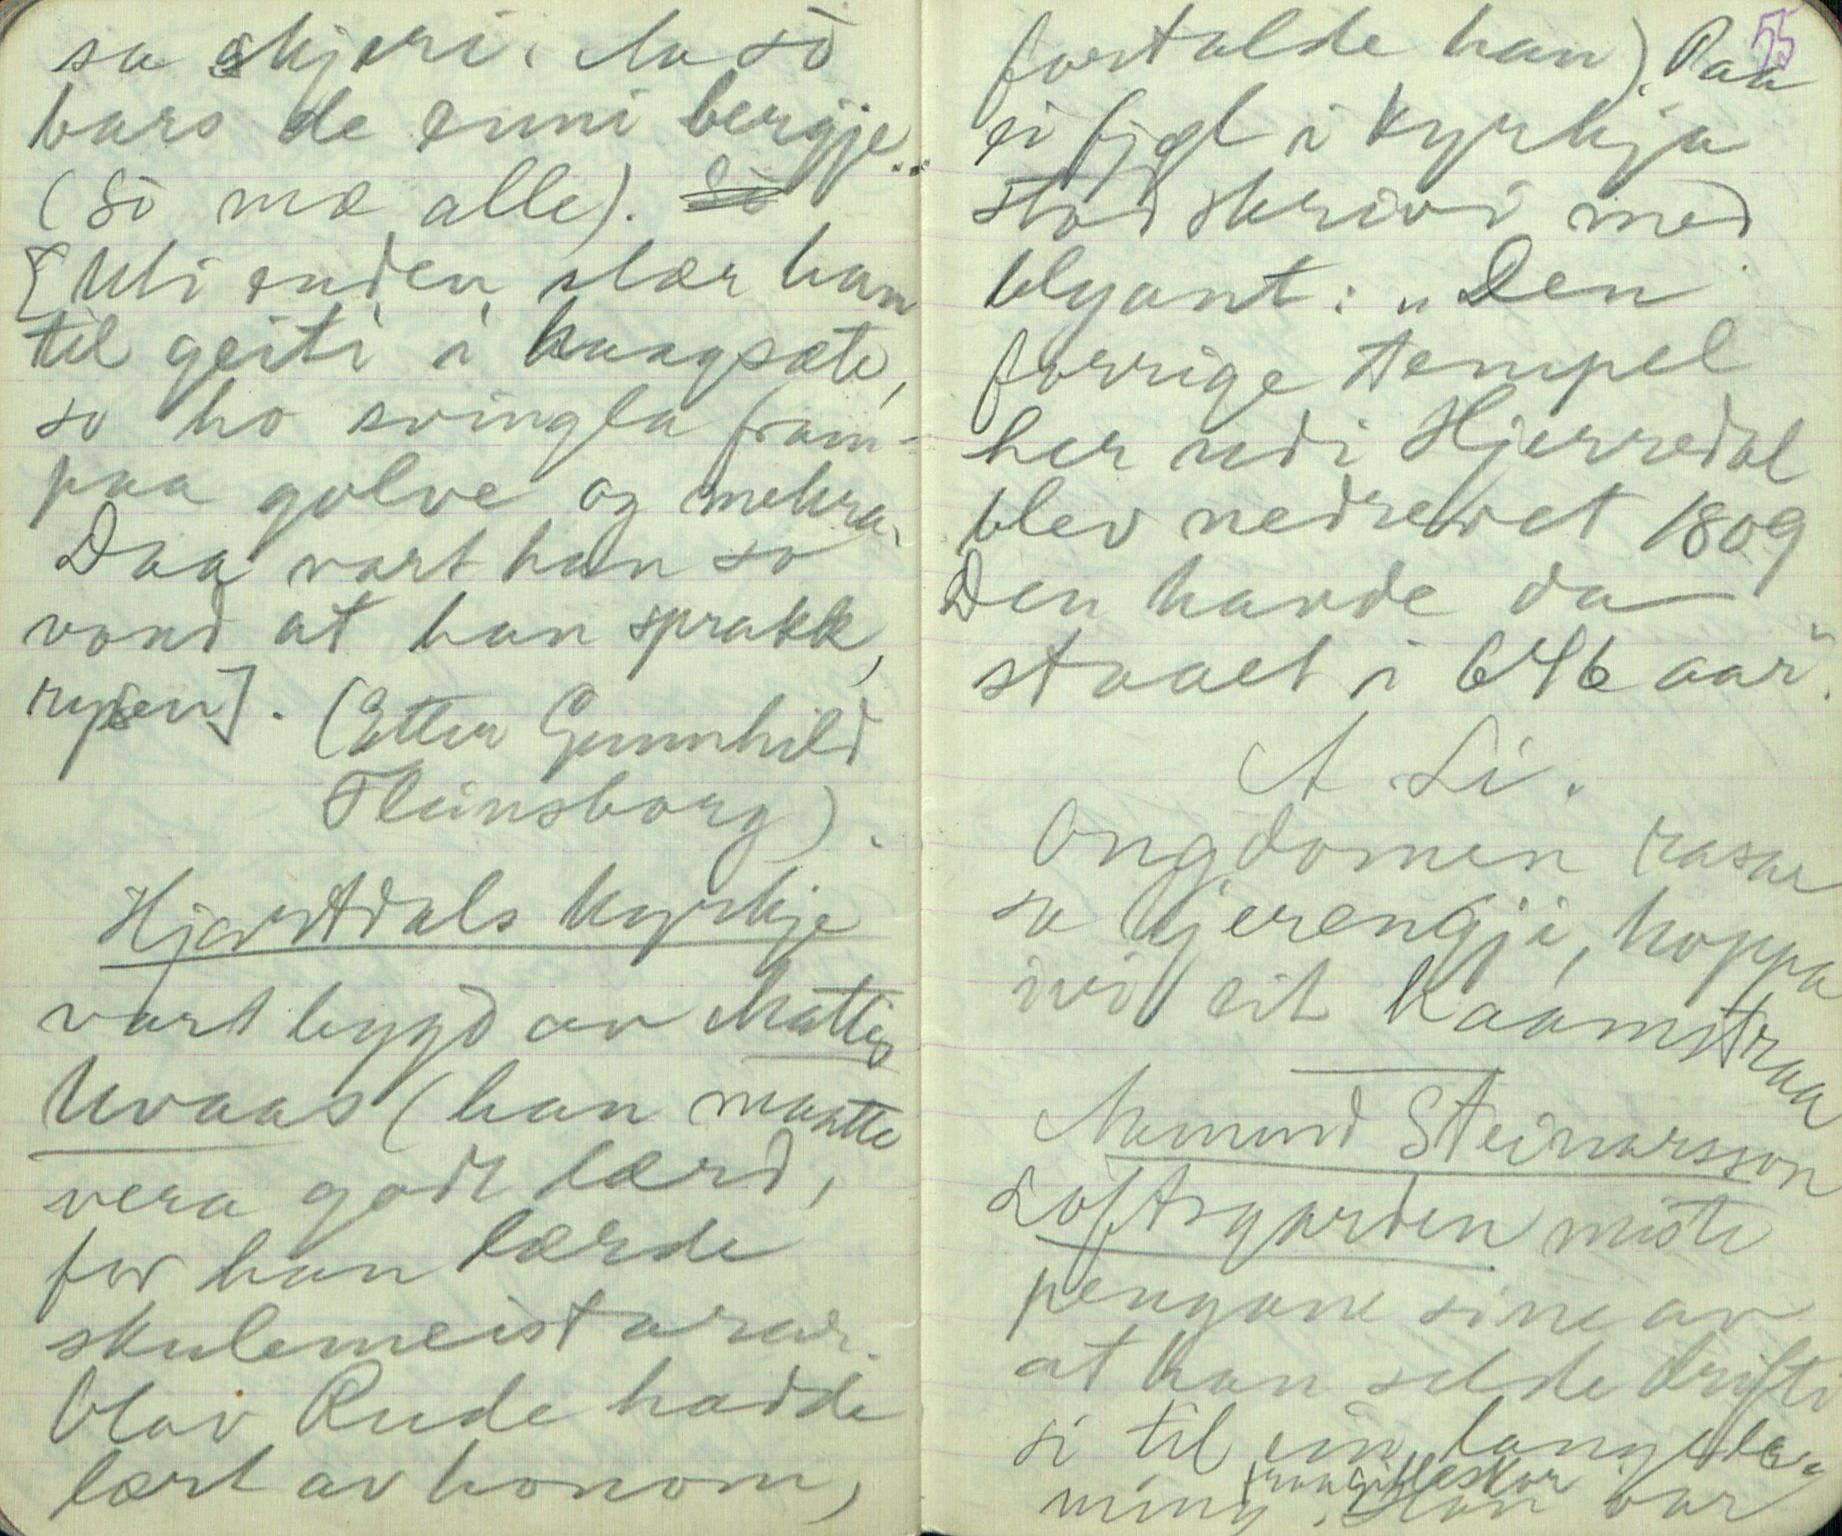 sa skjeri. Aa so
bars de inni bergje..
(So mæ alle). So
[Uti enden slær han
til geiti i haagsæte,
so ho svingla fram-
paa golve og mekra.
Daa vart han so
vond at han sprakk,
rysen]. (Etter Gunnhild
Fleinsborg).
Hjartdals kyrkje
vart bygd av Mattis
Uvaas (han maatte
vera godt lærd,
for han lærde
skulemeistarar.
Olav Rude hadde
lært av honom,
55
fortalde han). Paa
ei fjøl i kyrkja
stod skrivi med
blyant: „Den
forrige tempel
her udi Hjerredal
blev nedrevet 1809
Den havde da
staaet i 646 aar".
A. Li.
Ongdomen rasar
so gjerengji, hoppa
ivi eit kaamstraa
Aamund Steinarsson
Loftsgarden miste
pengane sine av
at han selde drifti
si til ein langlei-
ning. Han var